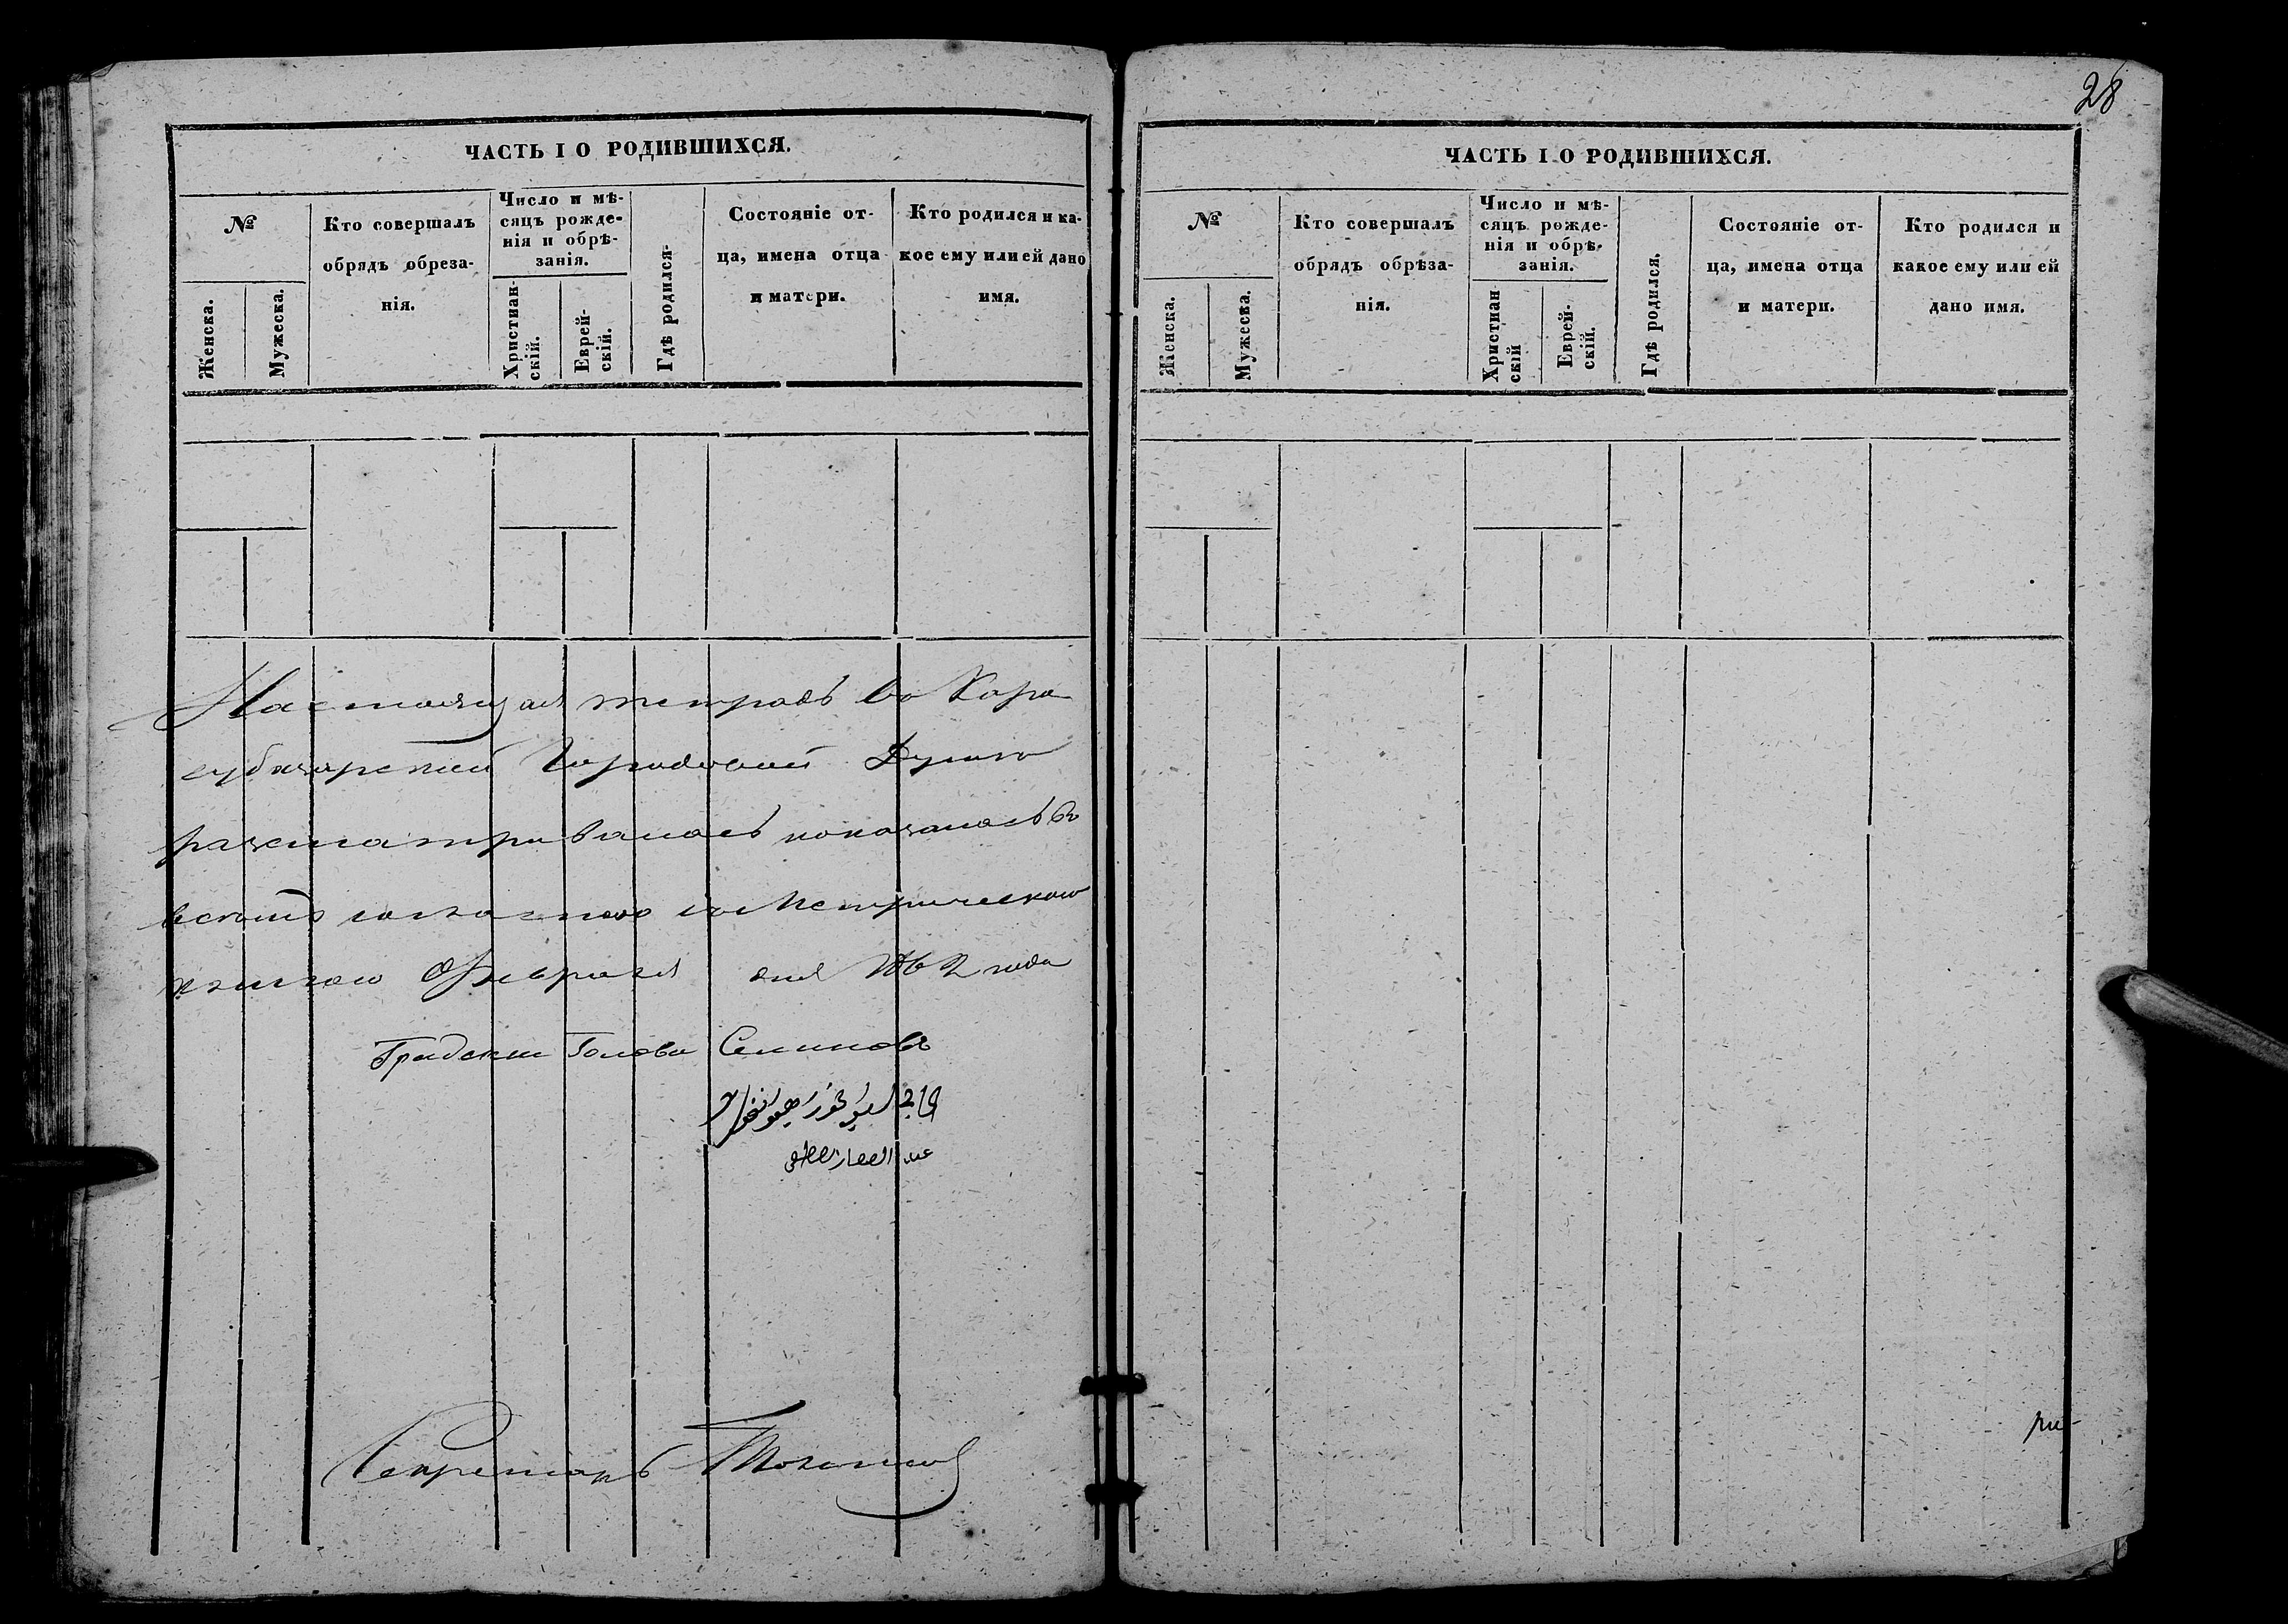 ЧАСТЬ I О РОДИВШИХСЯ.
№
Женска.
Мужеска.
Кто совершалъ
обрядъ обреза-
нія.
Число и мѣ-
сяцъ рожде-
нія и обрѣ-
занія.
Христиан-
скій.
Еврей-
скій.
Гдѣ родился-
Состояніе от-
ца, имена отца
и матери.
Кто родился и ка-
кое ему или ей дано
имя.
Настоящая тетрадь во Кара
субазарской Городовой Думе
разсматривалась показалась во
всемъ согласною со Метрическою
книгою Февраля дня 1862 года
Градский Голова
Секретарь
28
ЧАСТЬ I О РОДИВШИХСЯ.
№
Женска.
Мужеска.
Кто совершалъ
обрядъ обрѣза-
нія.
Число и мѣ-
сяцъ рожде-
нія и обрѣ-
занія.
Христиан
скій
Еврей-
скій.
Гдѣ родился.
Состояніе от-
ца, имена отца
и матери.
Кто родился и
какое ему или ей
дано имя.
ри-